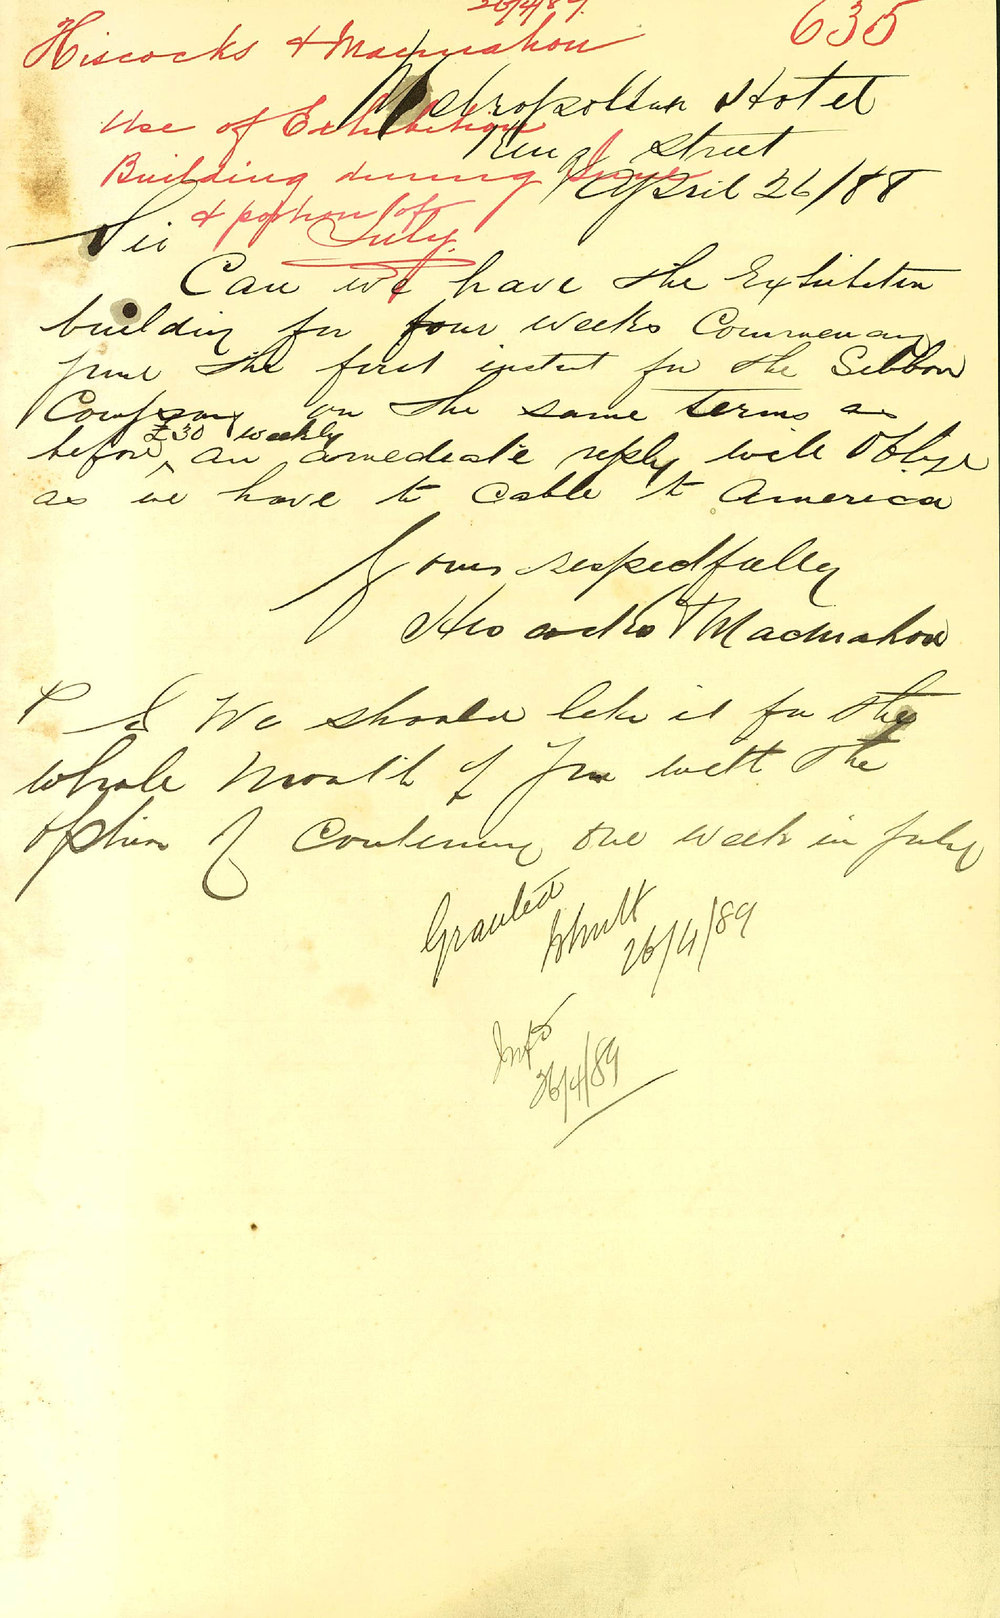 26/4/89.
635
Hiscocks & Macmahon
Use of Exhibition
Building during June
& portion of
July.
Metropolitan Hotel
King street
April 26/88
Sir
Can we have the Exhibition
building for four weeks Commencing
June the first instat for the
Company on the same terms as
before £30 weekly, an amediate reply will Oblige
as we have to Cable to America
Yours respectfully
Hiscocks & Macmahon
P S We should like it for the
whole Month of June with the
option of Contening one week in July
Granted
26/4/89
Inf
26/4/89